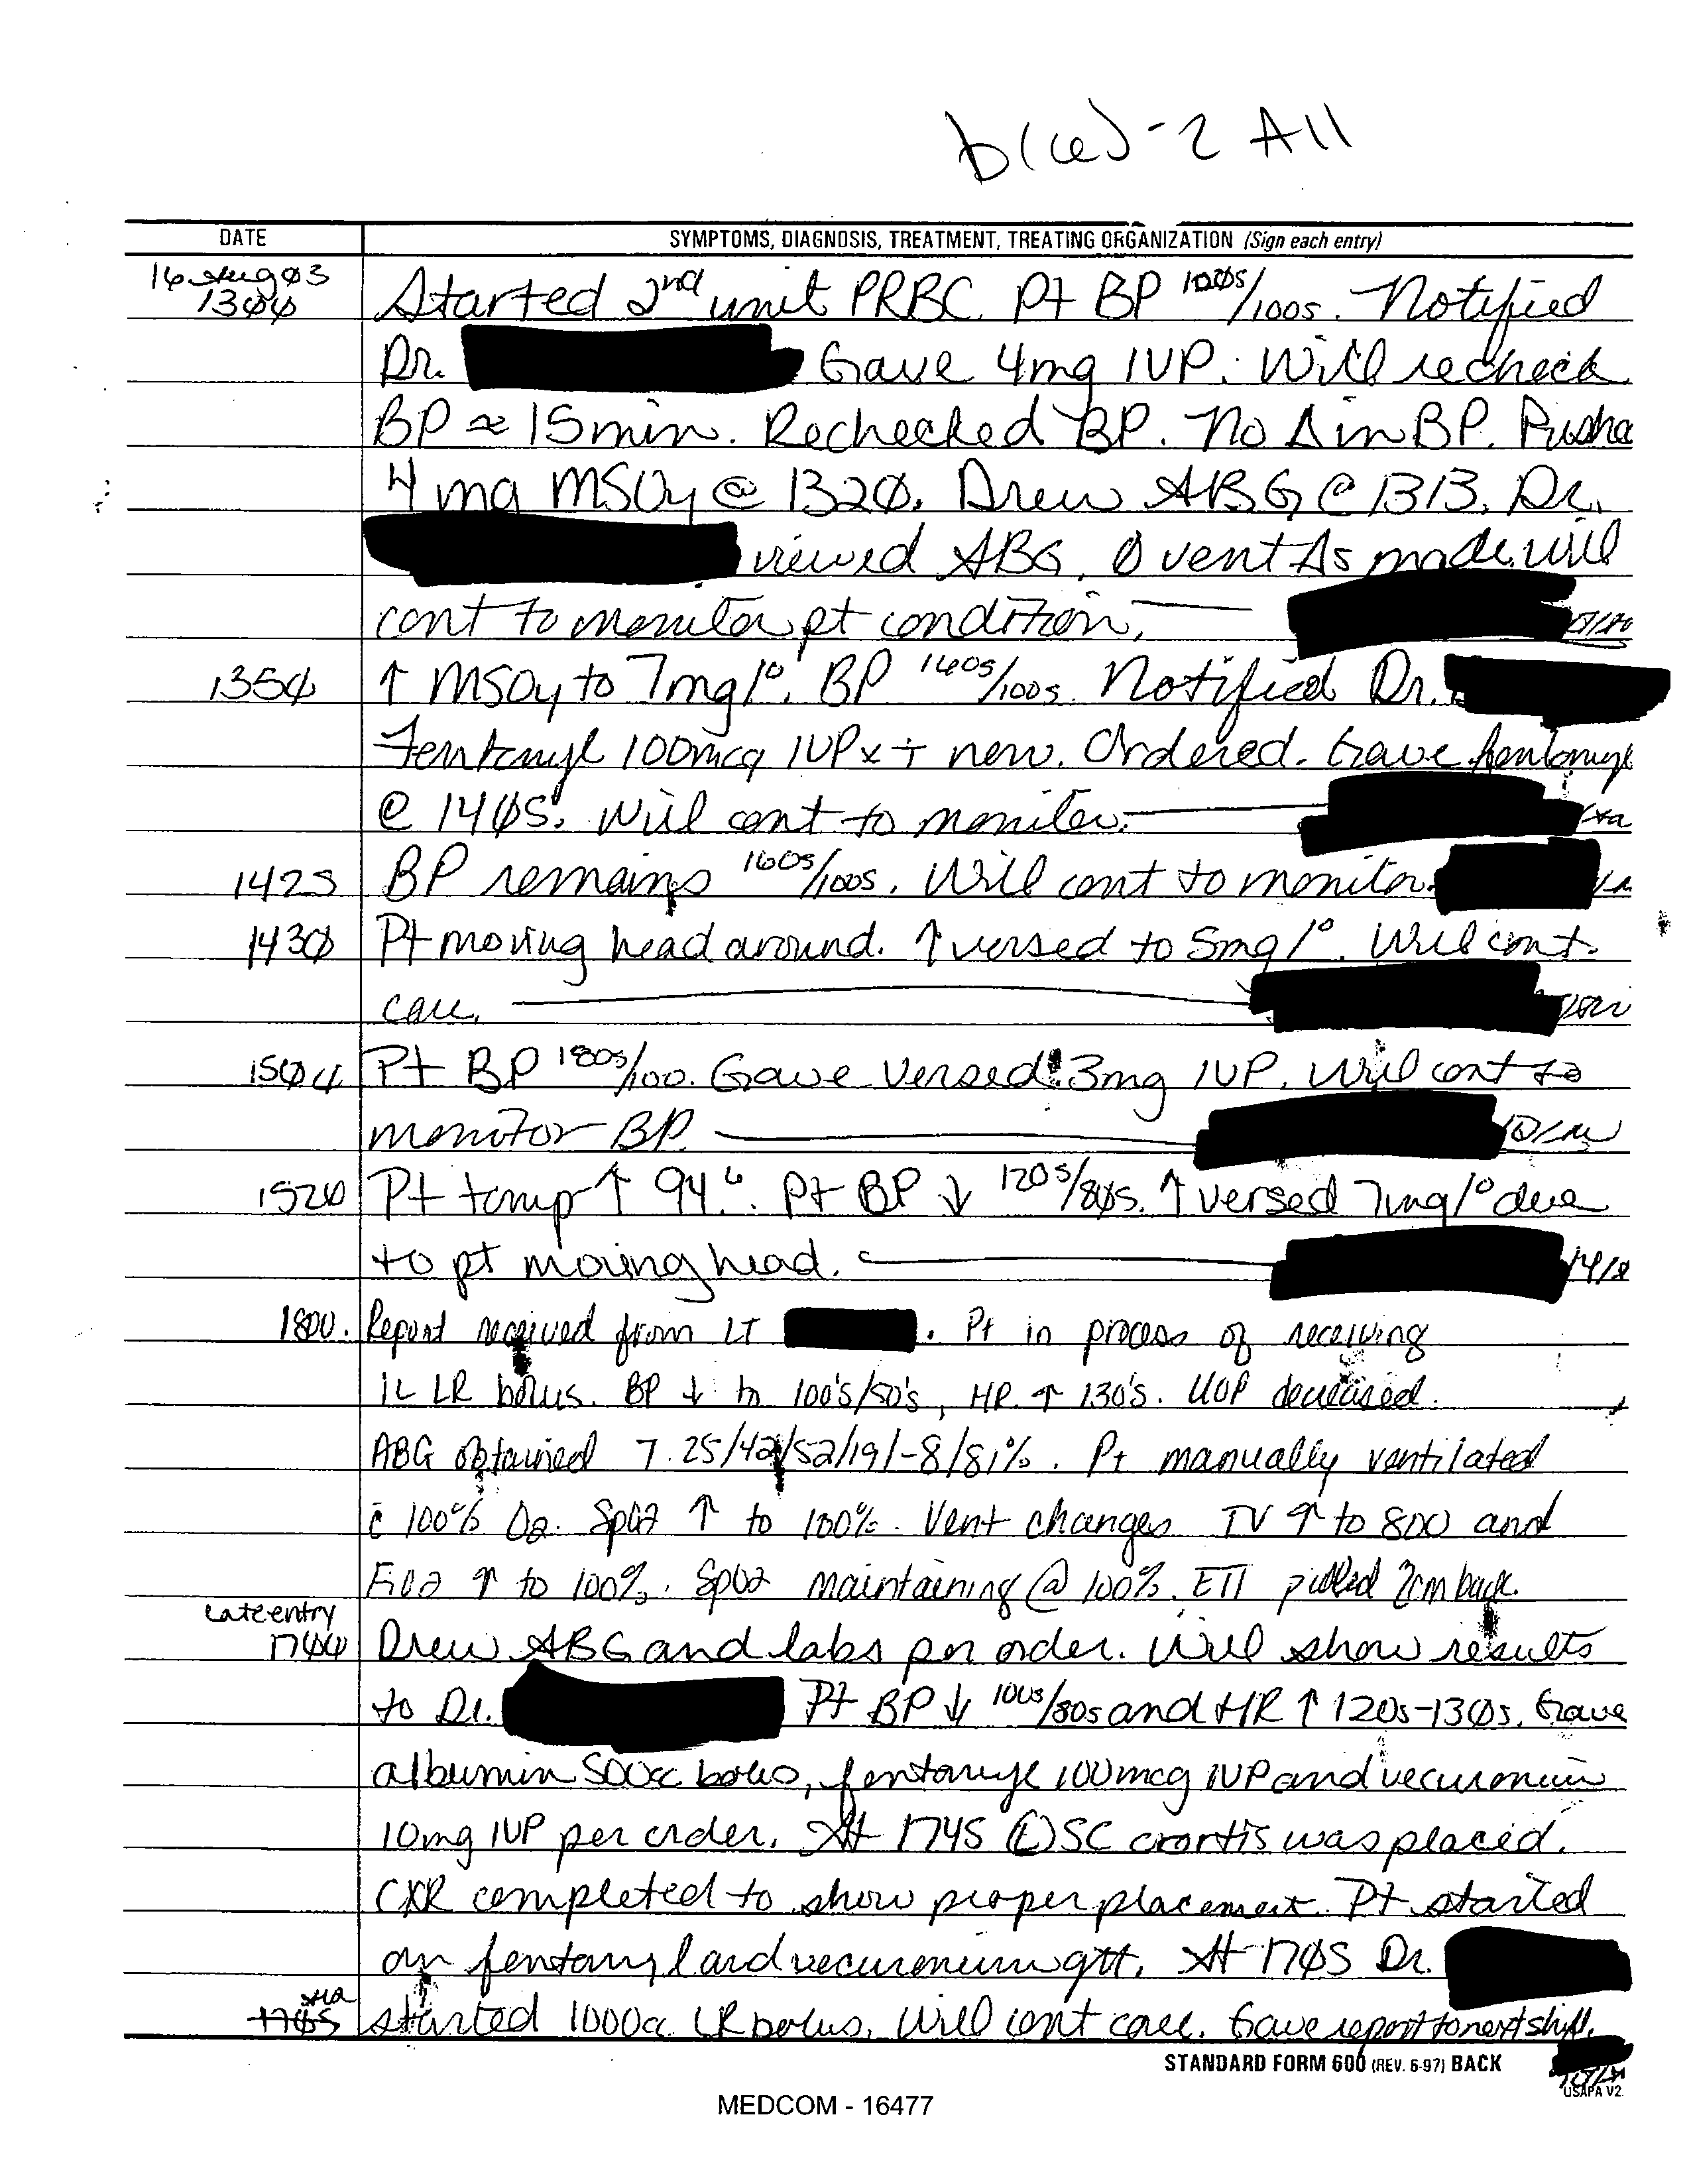 b(6)-2 All
DATE SYMPTOMS, DIAGNOSIS, TREATMENT, TREATING ORGANIZATION (Sign each entry)
16 Aug Ø3
13ØØ Started 2nd unit PRBC. Pt BP /100s. Notified
Dr. Gave 4mg IVP. Will recheck
BP ≈ 15min. Rechecked BP. No Δ in BP. Pushed
4 mg MSO4 @ 132Ø. Drew ABG @ 1313. Dr.
viewed ABG. Ø vent Δs made. Will
cont to monitor pt condition.
135Ø ↑ MSO4 to 7mg/°. BP 160s/100s. Notified Dr.
Fentanyl 100mcg IVP x i now. Ordered. Gave fentanyl
@ 14Ø5. Will cont to monitor.
1425 BP remains 160s/100s. Will cont to monitor.
143Ø Pt moving head around. ↑ versed to 5mg/°. Will cont.
care.
15Ø4 Pt BP 180s/100. Gave Versed 3mg IVP. Will cont to
monitor BP.
152Ø Pt temp ↑ 94.6. Pt BP ↓ 120s/8Øs. ↑ versed 7mg/° due
to pt moving head.
1800. Report received from LT . Pt in process of receiving
1L LR bolus. BP ↓ to 100's/50's, HR ↑ 130's. UOP decreased.
ABG obtained 7.25/42/52/19/-8/81%. Pt manually ventilated
c̄ 100% O2. SpO2 ↑ to 100%. Vent changes TV ↑ to 800 and
FiO2 ↑ to 100%. SpO2 maintaining @ 100%. ETT pulled 2cm back.
Late entry
17ØØ Drew ABG and labs per order. Will show results
to Dr. Pt BP ↓ 100s/80s and HR ↑ 120s-13Øs. Gave
albumin 500cc bolus, fentanyl 100mcg IVP and vecuronium
10mg IVP per order. At 1745 (L) SC cortis was placed.
CXR completed to show proper placement. Pt started
on fentanyl and vecuronium gtt. At 17Ø5 Dr.
17Ø5 started 1000cc LR bolus. Will cont care. Gave report to next shift.
STANDARD FORM 600 (REV. 6-97) BACK
USAPA V2
MEDCOM - 16477